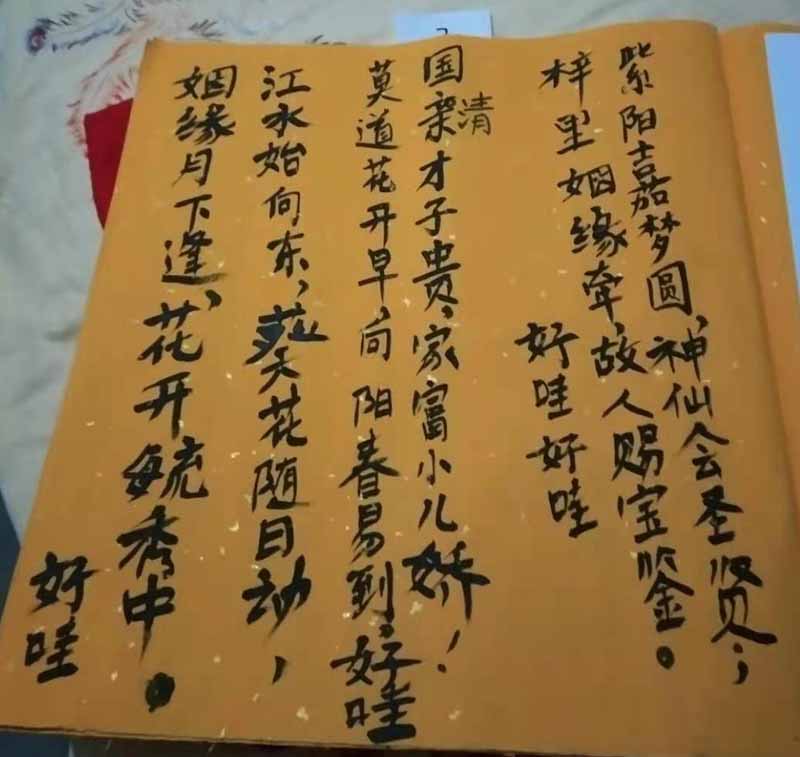 紫阳嘉梦圆,神仙会圣贤;
梓里姻缘牵,故人赐宝鉴。
好哇好哇
国亲才子贵,家富小儿娇!
清
莫道花开早,向阳春易到,好哇
江水始向东,葵花随日动,
姻缘月下逢,花开毓秀中。
好哇